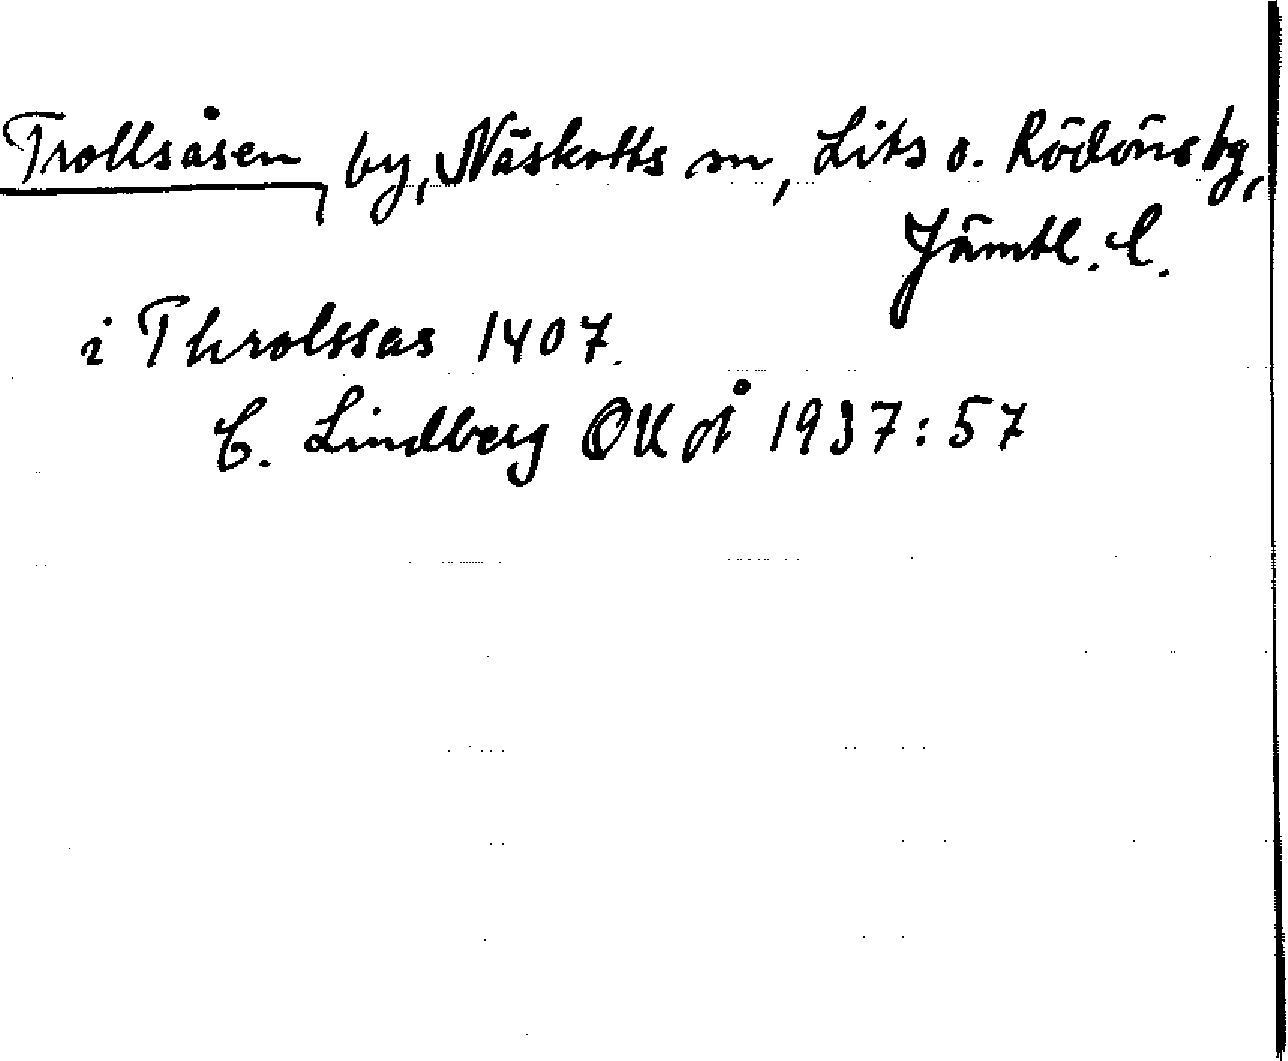 Trollsåsen, by, Näskotts sn, Lits o. Rödöns tg,
Jämtl. l.
i Throlssas 1407.
C. Lindberg OUÅ 1937:57